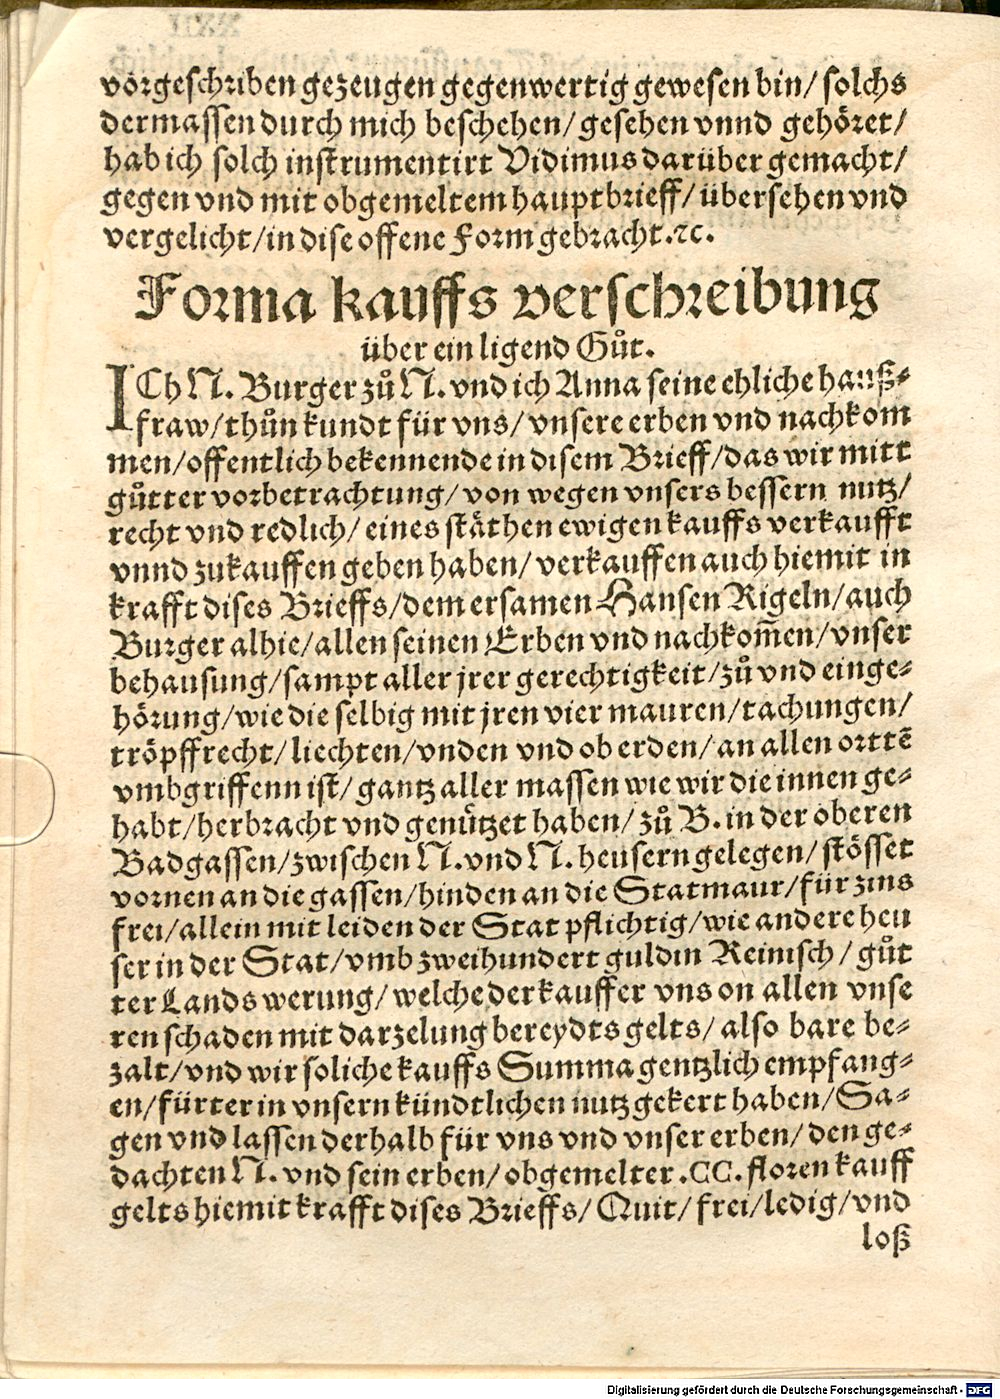 vorgeschriben gezeugen gegenwertig gewesen bin/ solchs
dermassen durch mich beschehen/ gesehen vnnd gehöret/
hab ich solch instrumentirt Vidimus darüber gemacht/
gegen vnd mit obgemeltem hauptbrieff/ übersehen vnd
vergelicht/ in dise offene Form gebracht.ꝛc.
Forma kauffs verschreibung
über ein ligend Gůt.
ICh N. Burger zů N. vnd ich Anna seine ehliche hauß⸗
fraw/ thůn kundt für vns/ vnsere erben vnd nachkom
men/ offentlich bekennende in disem Brieff/ das wir mitt
gůtter vorbetrachtung/ von wegen vnsers bessern nutz/
recht vnd redlich/ eines stäthen ewigen kauffs verkaufft
vnnd zukauffen geben haben/ verkauffen auch hiemit in
krafft dises Brieffs/ dem ersamen Hansen Rigeln/ auch
Burger alhie/ allen seinen Erben vnd nachkom̃en/ vnser
behausung/ sampt aller jrer gerechtigkeit/ zů vnd einge⸗
hörung/ wie die selbig mit jren vier mauren/ tachungen/
tröpffrecht/ liechten/ vnden vnd ob erden/ an allen orttẽ
vmbgriffenn ist/ gantz aller massen wie wir die innen ge⸗
habt/ herbracht vnd genützet haben/ zů B. in der oberen
Badgassen/ zwischen N. vnd N. heusern gelegen/ stösset
vornen an die gassen/ hinden an die Statmaur/ für zins
frei/ allein mit leiden der Stat pflichtig/ wie andere heu
ser in der Stat/ vmb zweihundert guldin Reinisch/ gůt
ter Lands werung/ welche der kauffer vns on allen vnse
ren schaden mit darzelung bereydts gelts/ also bare be⸗
zalt/ vnd wir soliche kauffs Summa gentzlich empfang⸗
en/ fürter in vnsern kündtlichen nutz gekert haben/ Sa⸗
gen vnd lassen derhalb für vns vnd vnser erben/ den ge⸗
dachten N. vnd sein erben/ obgemelter .CC. floren kauff
gelts hiemit krafft dises Brieffs/ Quit/ frei/ ledig/ vnd
loß
Digitalisierung gefördert durch die Deutsche Forschungsgemeinschaft - DFG